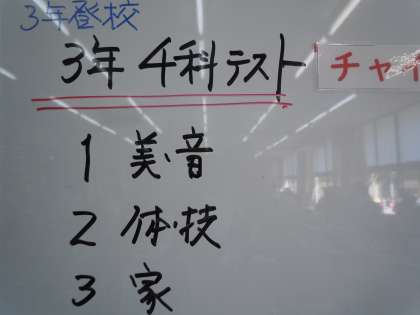 3年登校
3年 4科テスト
チャイ
1 美・音
2 体・技
3 家